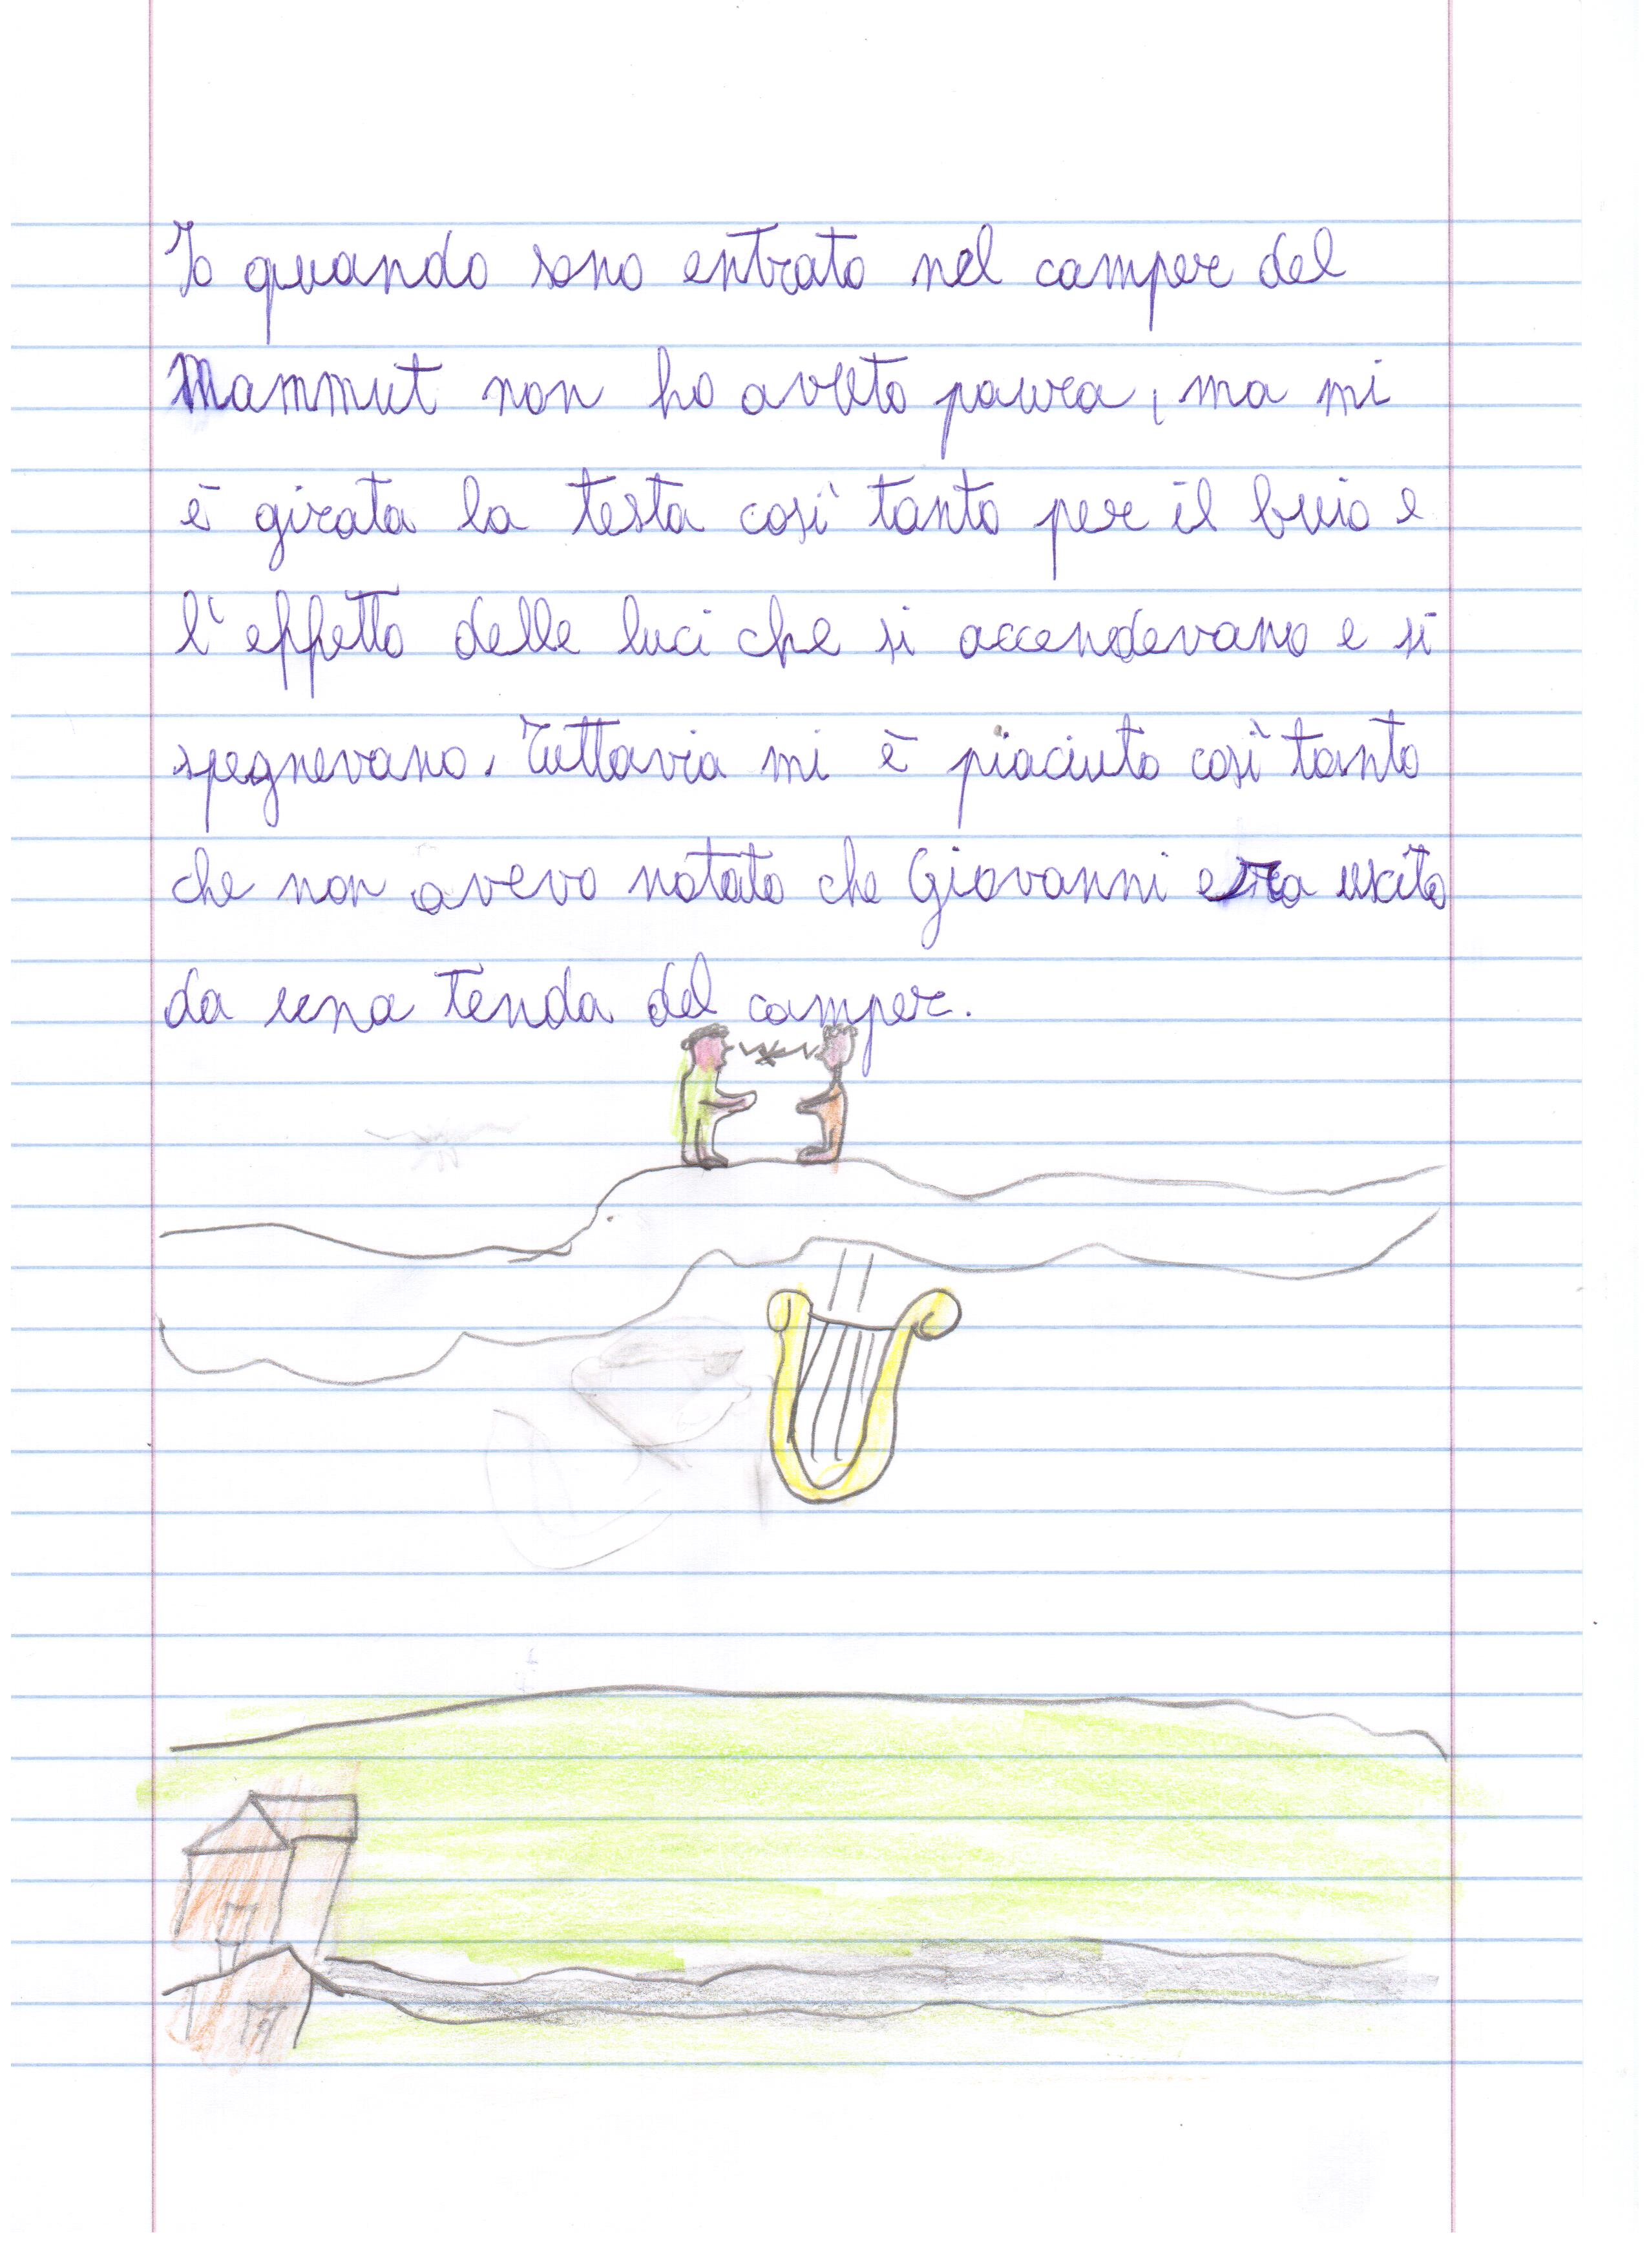 Io quando sono entrato nel camper del
Mammut non ho avuto paura, ma mi
è girata la testa così tanto per il buio e
l'effetto delle luci che si accendevano e si
spegnevano. Tuttavia mi è piaciuto così tanto
che non avevo notato che Giovanni era uscito
da una tenda del camper.